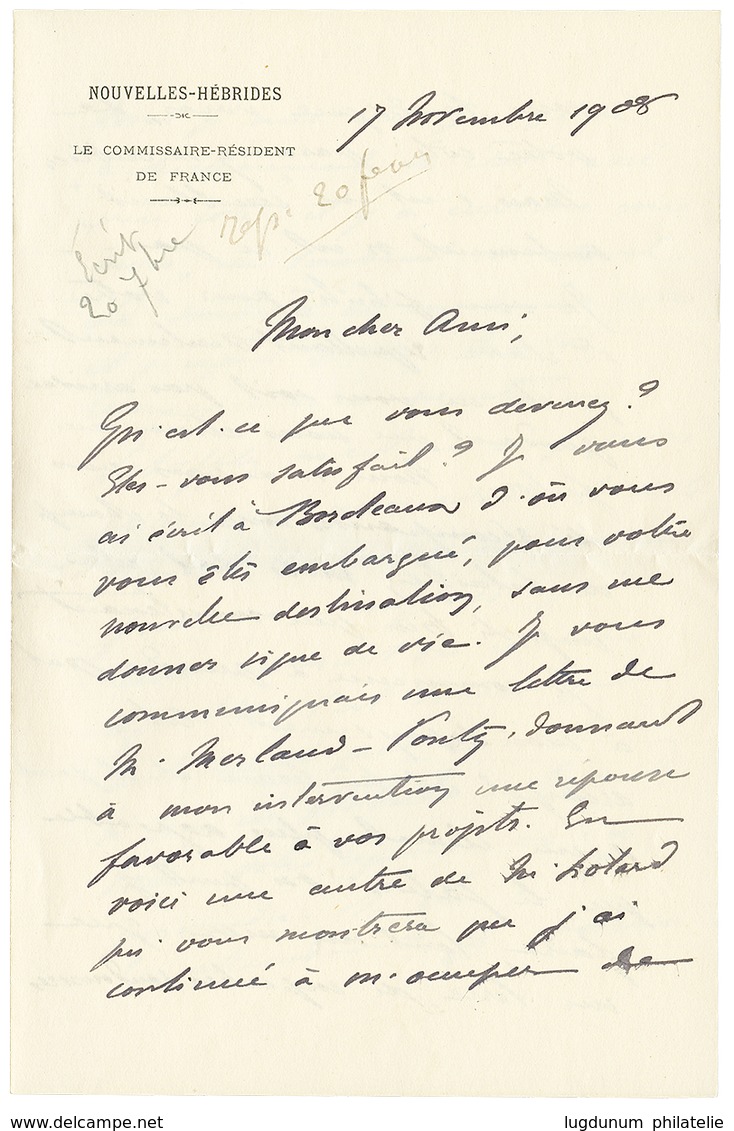 NOUVELLES-HÉBRIDES
17 Novembre 1908
LE COMMISSAIRE-RÉSIDENT
DE FRANCE
rép. 20 fevr
Ecrit
20 7bre
Mon cher Ami,
Qu'est-ce que vous devenez ?
Etes-vous satisfait ? Je vous
ai écrit à Bordeaux d'où vous
vous êtes embarqué, pour votre
nouvelle destination, sans me
donner signe de vie. Je vous
communiquais une lettre de
M. Merlaud-Ponty, donnant
à mon intervention une réponse
favorable à vos projets. En
voici une autre de M.
qui vous montrera que j'ai
continué à m'occuper de
www.delcampe.net
lugdunum philatelie